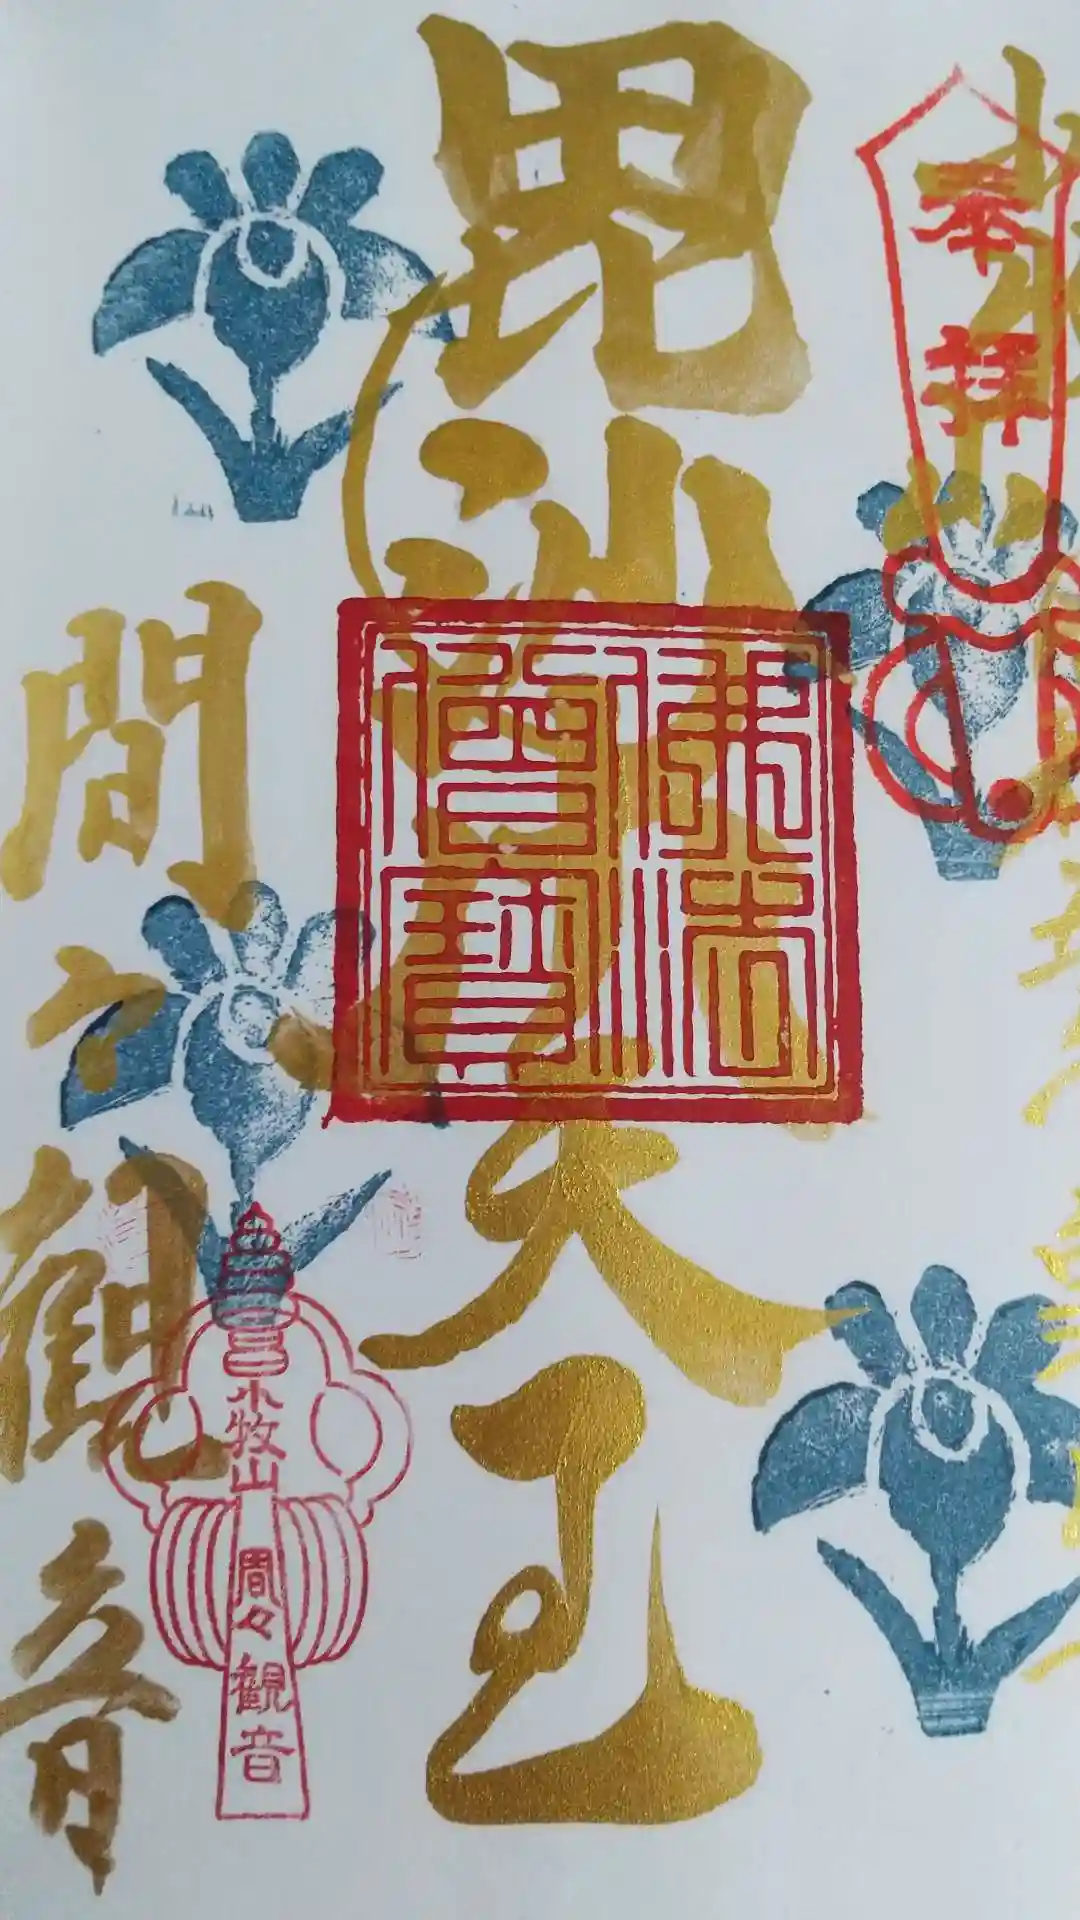 奉拝
毘沙門天王
佛法
僧寳
間々観音
小牧山
間々観音